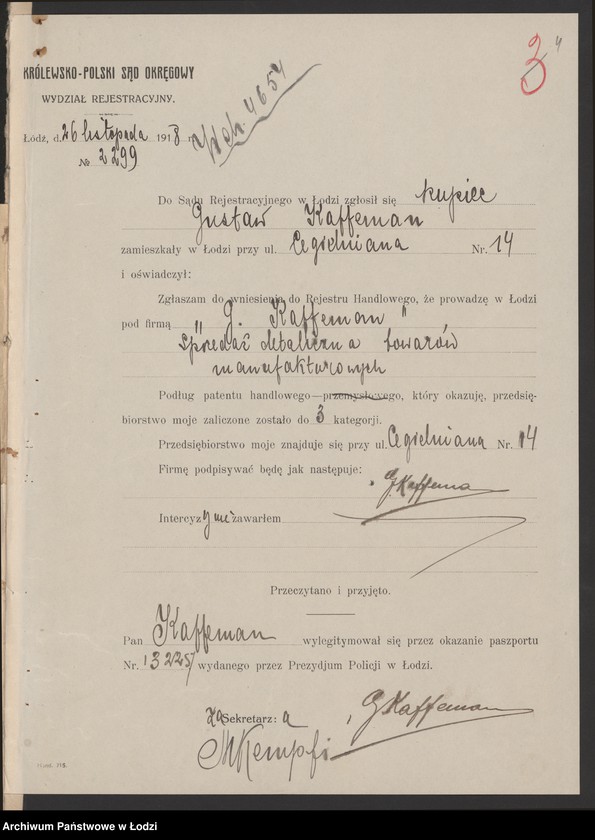 3 4
KRÓLEWSKO-POLSKI SĄD OKRĘGOWY
WYDZIAŁ REJESTRACYJNY.
Łódź, d. 26 listopada 1918 r.
№ 2299
4654
Do Sądu Rejestracyjnego w Łodzi zgłosił się kupiec
Gustaw Kaffeman
zamieszkały w Łodzi przy ul. Cegielniana Nr. 14
i oświadczył:
Zgłaszam do wniesienia do Rejestru Handlowego, że prowadzę w Łodzi
pod firmą „G. Kaffeman"
Sprzedaż detaliczna towarów
manufakturowych
Podług patentu handlowego—przemysłowego, który okazuję, przedsię-
biorstwo moje zaliczone zostało do 3 kategorji.
Przedsiębiorstwo moje znajduje się przy ul. Cegielniana Nr. 14
Firmę podpisywać będę jak następuje:
G. Kaffeman
Intercyzy nie zawarłem
Przeczytano i przyjęto.
Pan Kaffeman wylegitymował się przez okazanie paszportu
Nr. 132257 wydanego przez Prezydjum Policji w Łodzi.
Za Sekretarz: a
G Kaffeman
MKempfi
Archiwum Państwowe w Łodzi